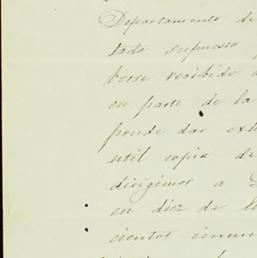 Departamento de
tado supuesto
berse recibido
en parte de la
ponde dar exh
util copia de
dirigimos a
en diez de
cientos